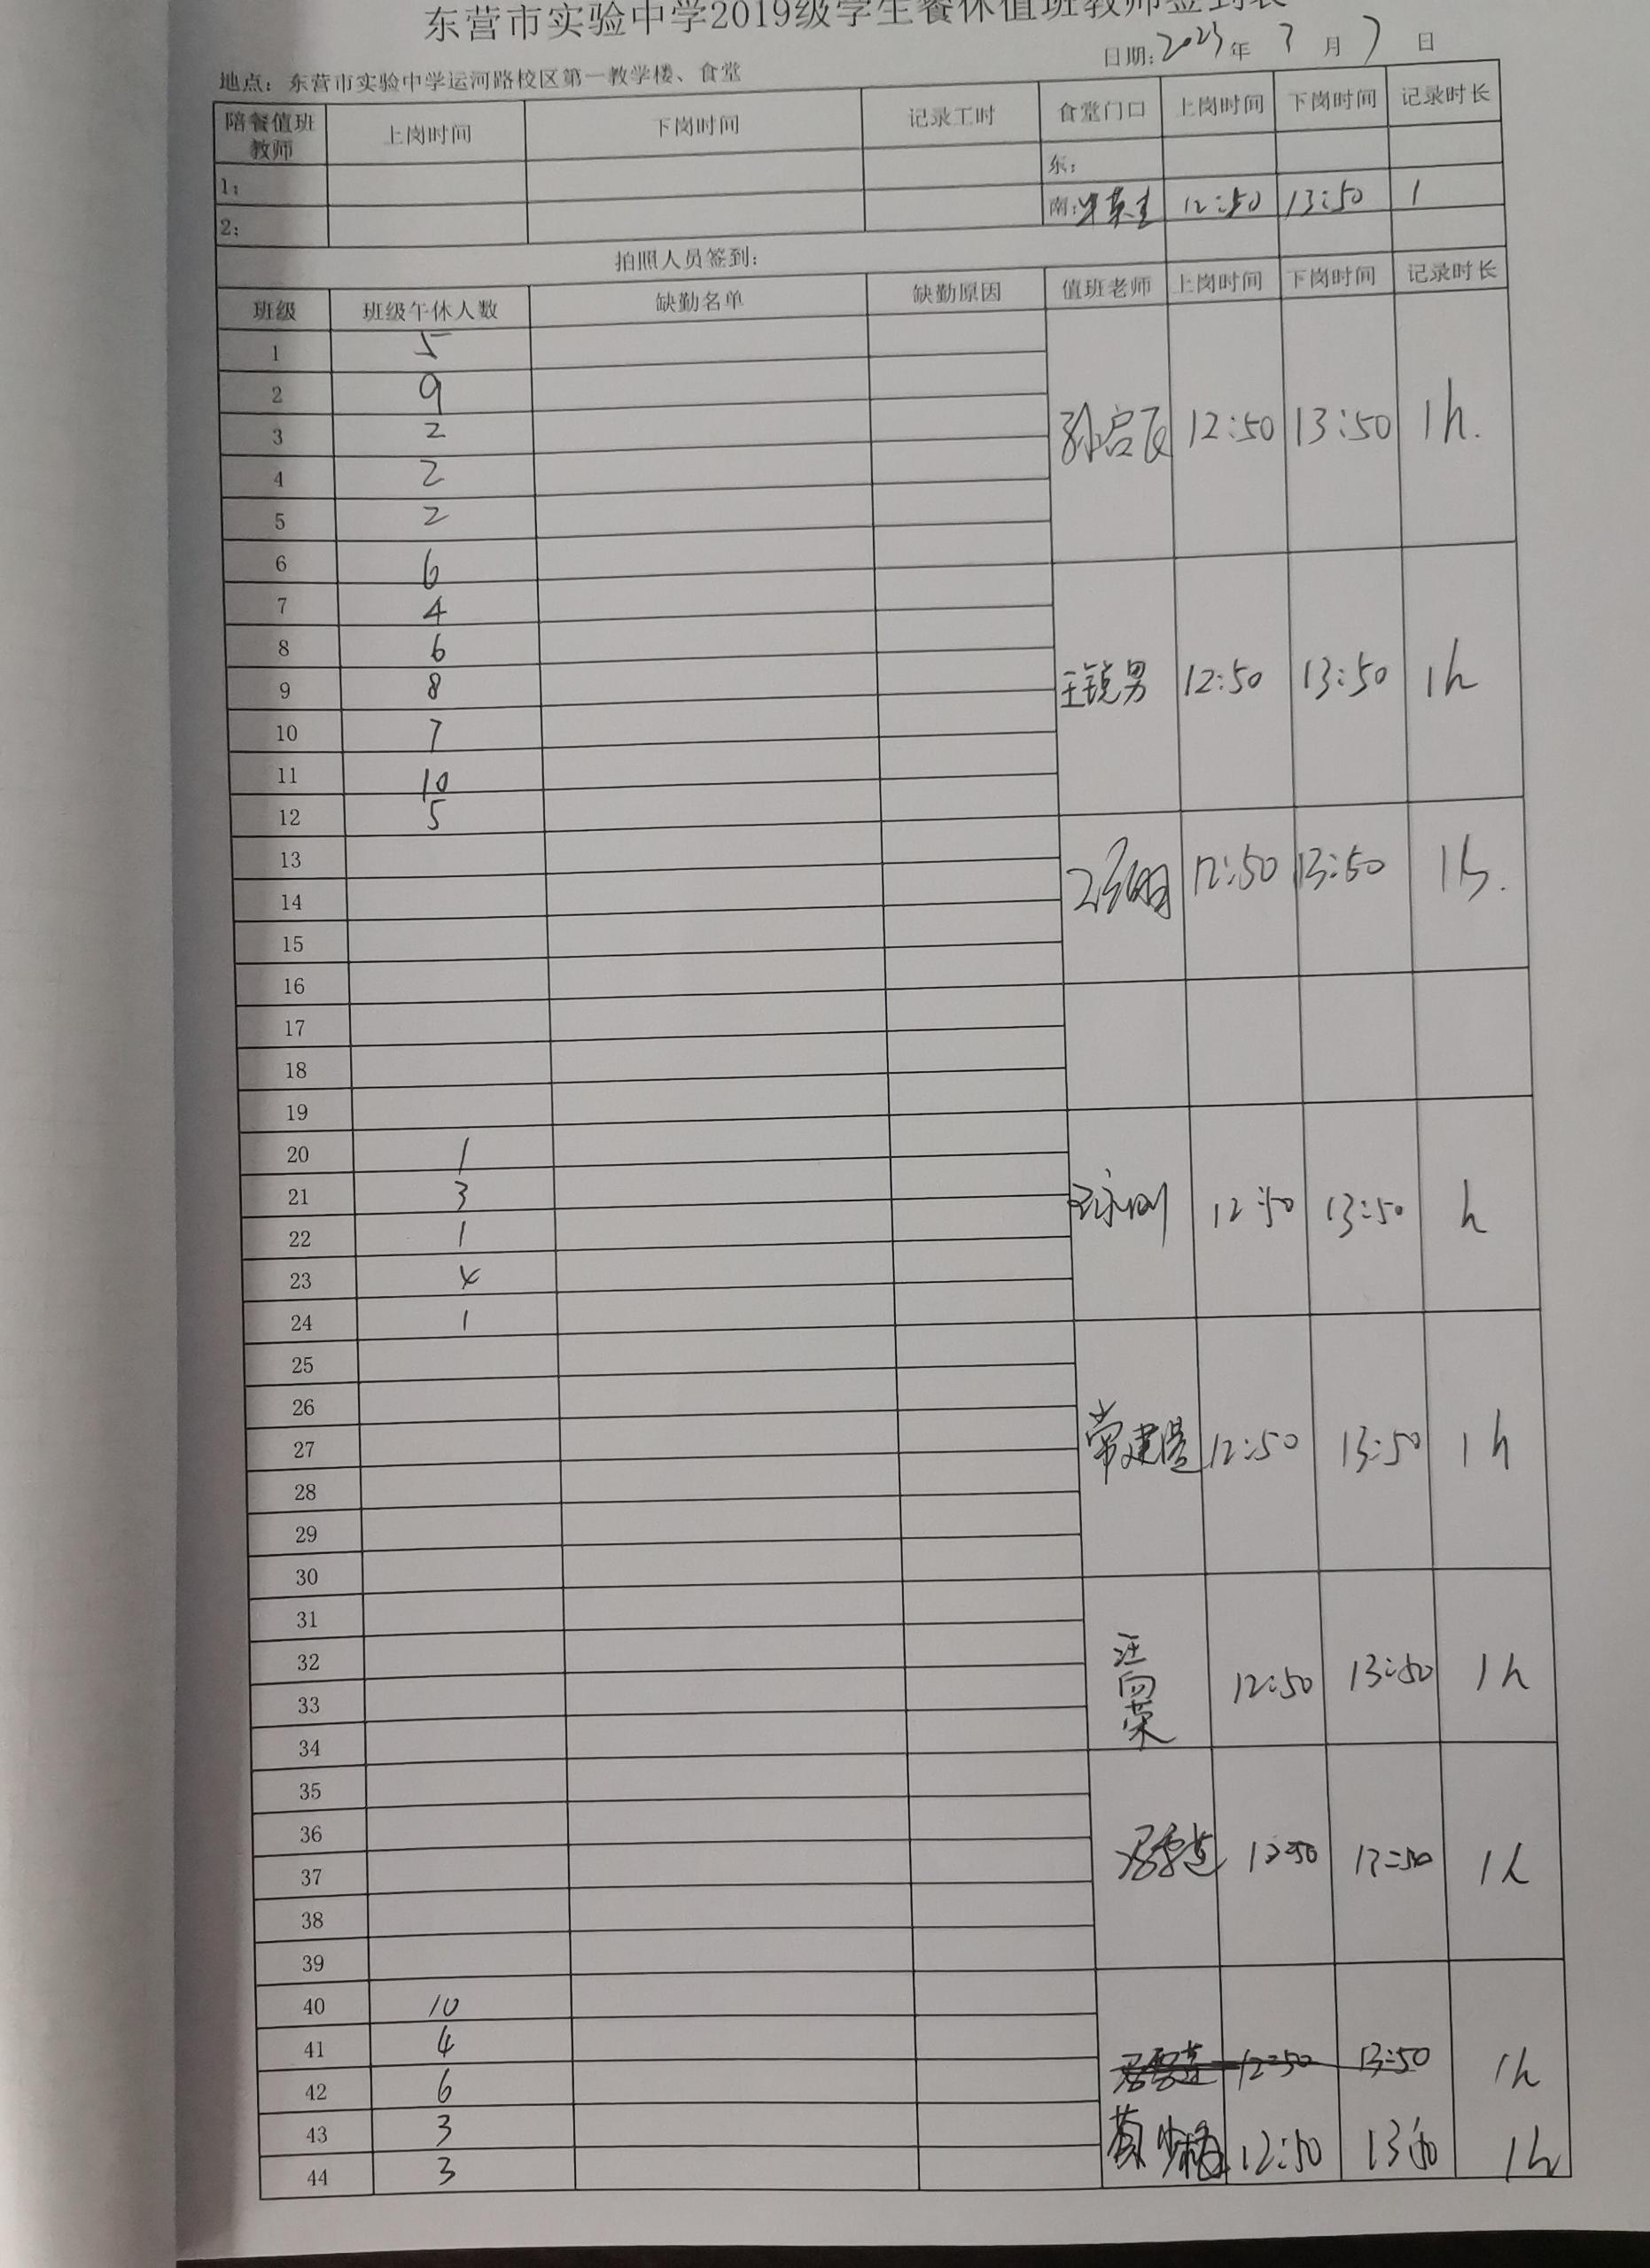 东营市实验中学2019级学生餐休值班教师签到表
日期:2023年 月7日
地点:东营市实验中学运河路校区第一教学楼、食堂
陪餐值班教师 上岗时间 下岗时间 记录工时 食堂门口 上岗时间 下岗时间 记录时长
1: 东:
2: 南: 12:50 13:50 1
拍照人员签到:
班级 班级午休人数 缺勤名单 缺勤原因 值班老师 上岗时间 下岗时间 记录时长
1 5
2 9
3 2 孙启 12:50 13:50 1h.
4 2
5 2
6 6
7 4
8 6
9 8 王锐男 12:50 13:50 1h
10 7
11 10
12 5
13
14 12:50 13:50 1h.
15
16
17
18
19
20 1
21 3
22 1 12:50 13:50 h
23 4
24 1
25
26
27 常建 12:50 13:50 1h
28
29
30
31
32 汪向荣 12:50 13:50 1h
33
34
35
36
37 12:50 13:50 1h
38
39
40 10
41 4
42 6 12:50 13:50 1h
43 3
44 3 12:50 13:50 1h